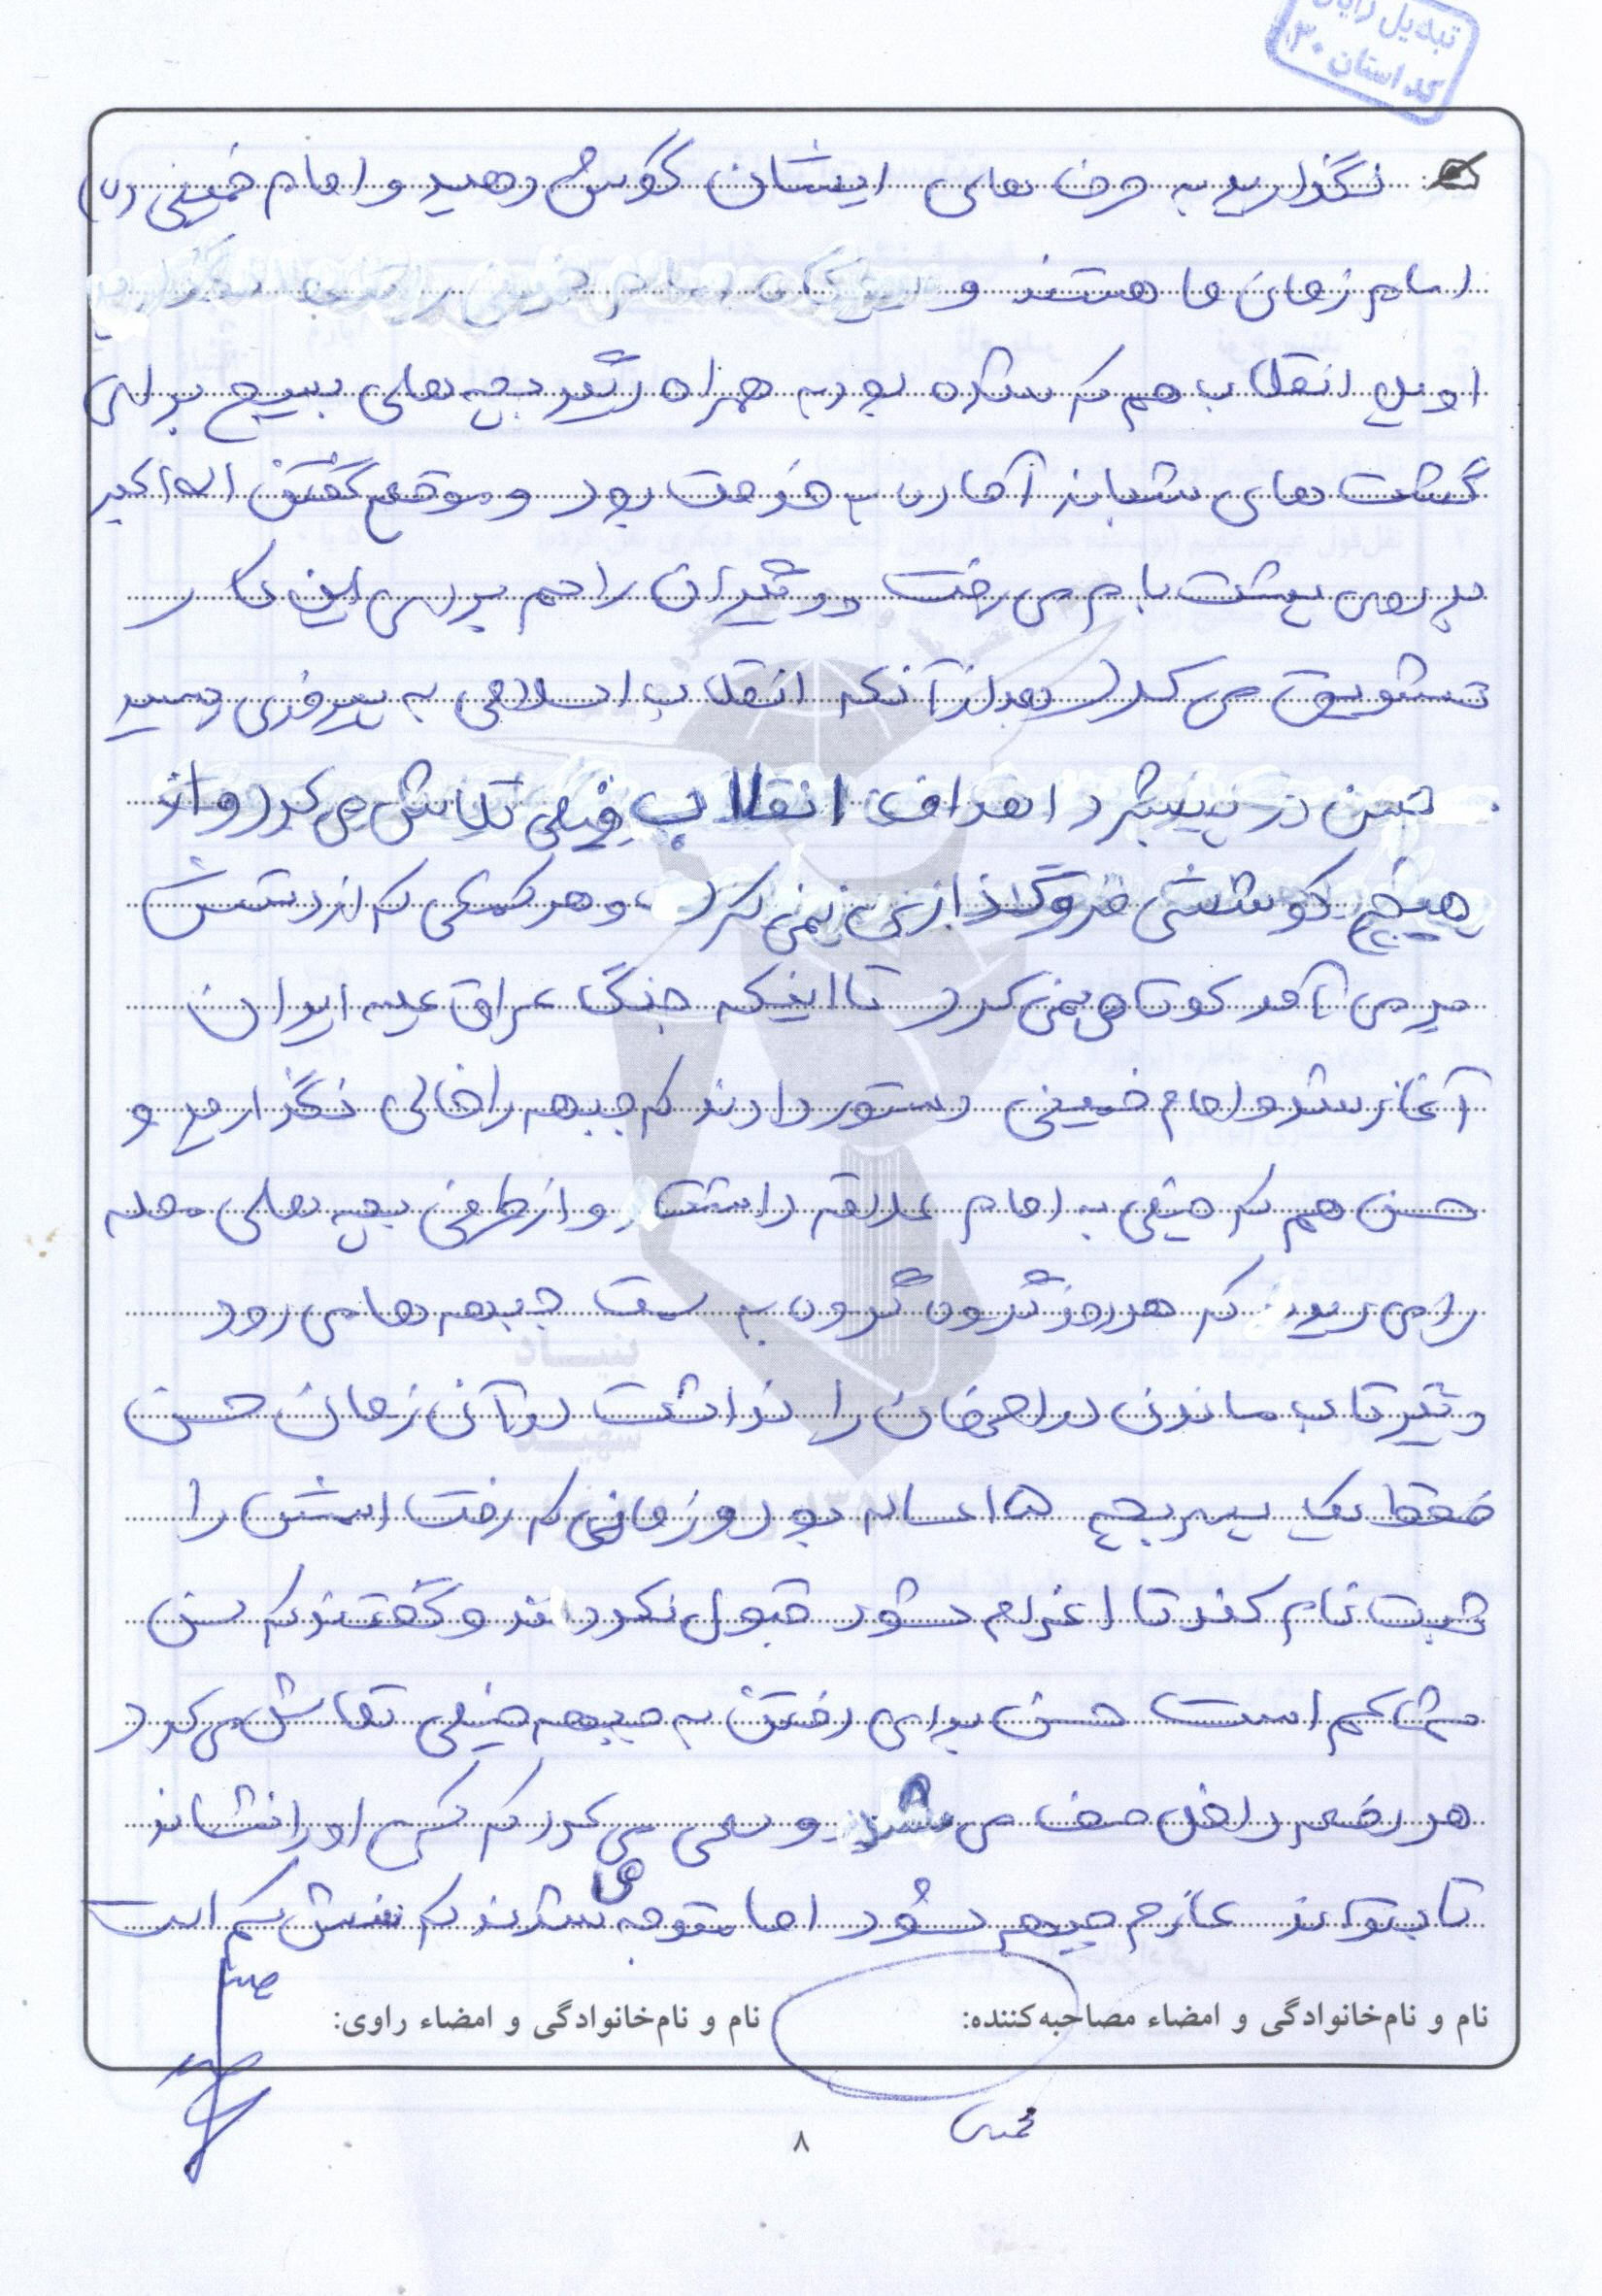 تبدیل
کد استان ۳۰
نگذارید به حرف های ایشان گوش دهید و امام خمینی (ره)
امام زمان ما هستند و
اویل انقلاب هم که شده بود به همراه دیگر بچه های بسیج برای
گشت های شبانه آماده به خدمت بود و موقع گفتن اله اکبر
بر روی پشت بام می رفت و دیگران را هم برای این کار
تشویق می کرد بعد از آنکه انقلاب اسلامی به پیروزی رسید
حسن در پیشبرد اهداف انقلاب خیلی تلاش می کرد و از
هیچ کوششی فروگذاری نمی کرد و هر کمکی که از دستش
بر می آمد کوتاهی نمی کرد تا اینکه جنگ عراق علیه ایران
آغاز شد و امام خمینی دستور دادند که جبهه را خالی نگذارید و
حسن هم که خیلی به امام علاقه داشت و از طرفی بچه های محله
را می دید که هر روز گروه گروه به سمت جبهه ها می رود
دیگر تاب ماندن در خانه را نداشت در آن زمان حسن
فقط یک پسر بچه ۱۵ ساله بود و زمانی که رفت اسمش را
ثبت نام کند تا اعزام شود قبول نکردند و گفتند که سن
شما کم است حسن برای رفتن به جبهه خیلی تلاش می کرد
هر دفعه داخل صف می شد و سعی می کرد که کسی او را نشناسد
تا بتواند عازم جبهه شود اما متوجه می شدند که سنش کم است
نام و نام‌خانوادگی و امضاء مصاحبه‌کننده:
نام و نام‌خانوادگی و امضاء راوی:
۸